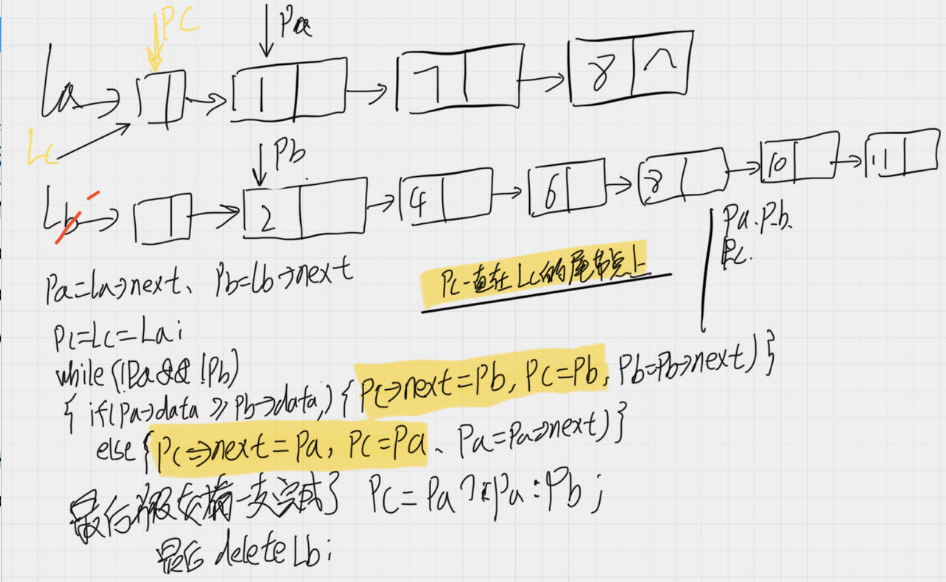 PC Pa
La 1 7 8 ∧
Lc
Pb
Lb 2 4 6 8 10 11
Pa.Pb.
Pc.
Pa=La->next、Pb=Lb->next
Pc一直在Lc的尾节点上
Pc=Lc=La;
while(!Pa && !Pb)
{ if(Pa->data ≥ Pb->data,){Pc->next=Pb, Pc=Pb, Pb=Pb->next)}
else{Pc->next=Pa, Pc=Pa、Pa=Pa->next)}
最后 一支完成了 Pc=Pa?Pa:Pb;
最后 delete Lb;